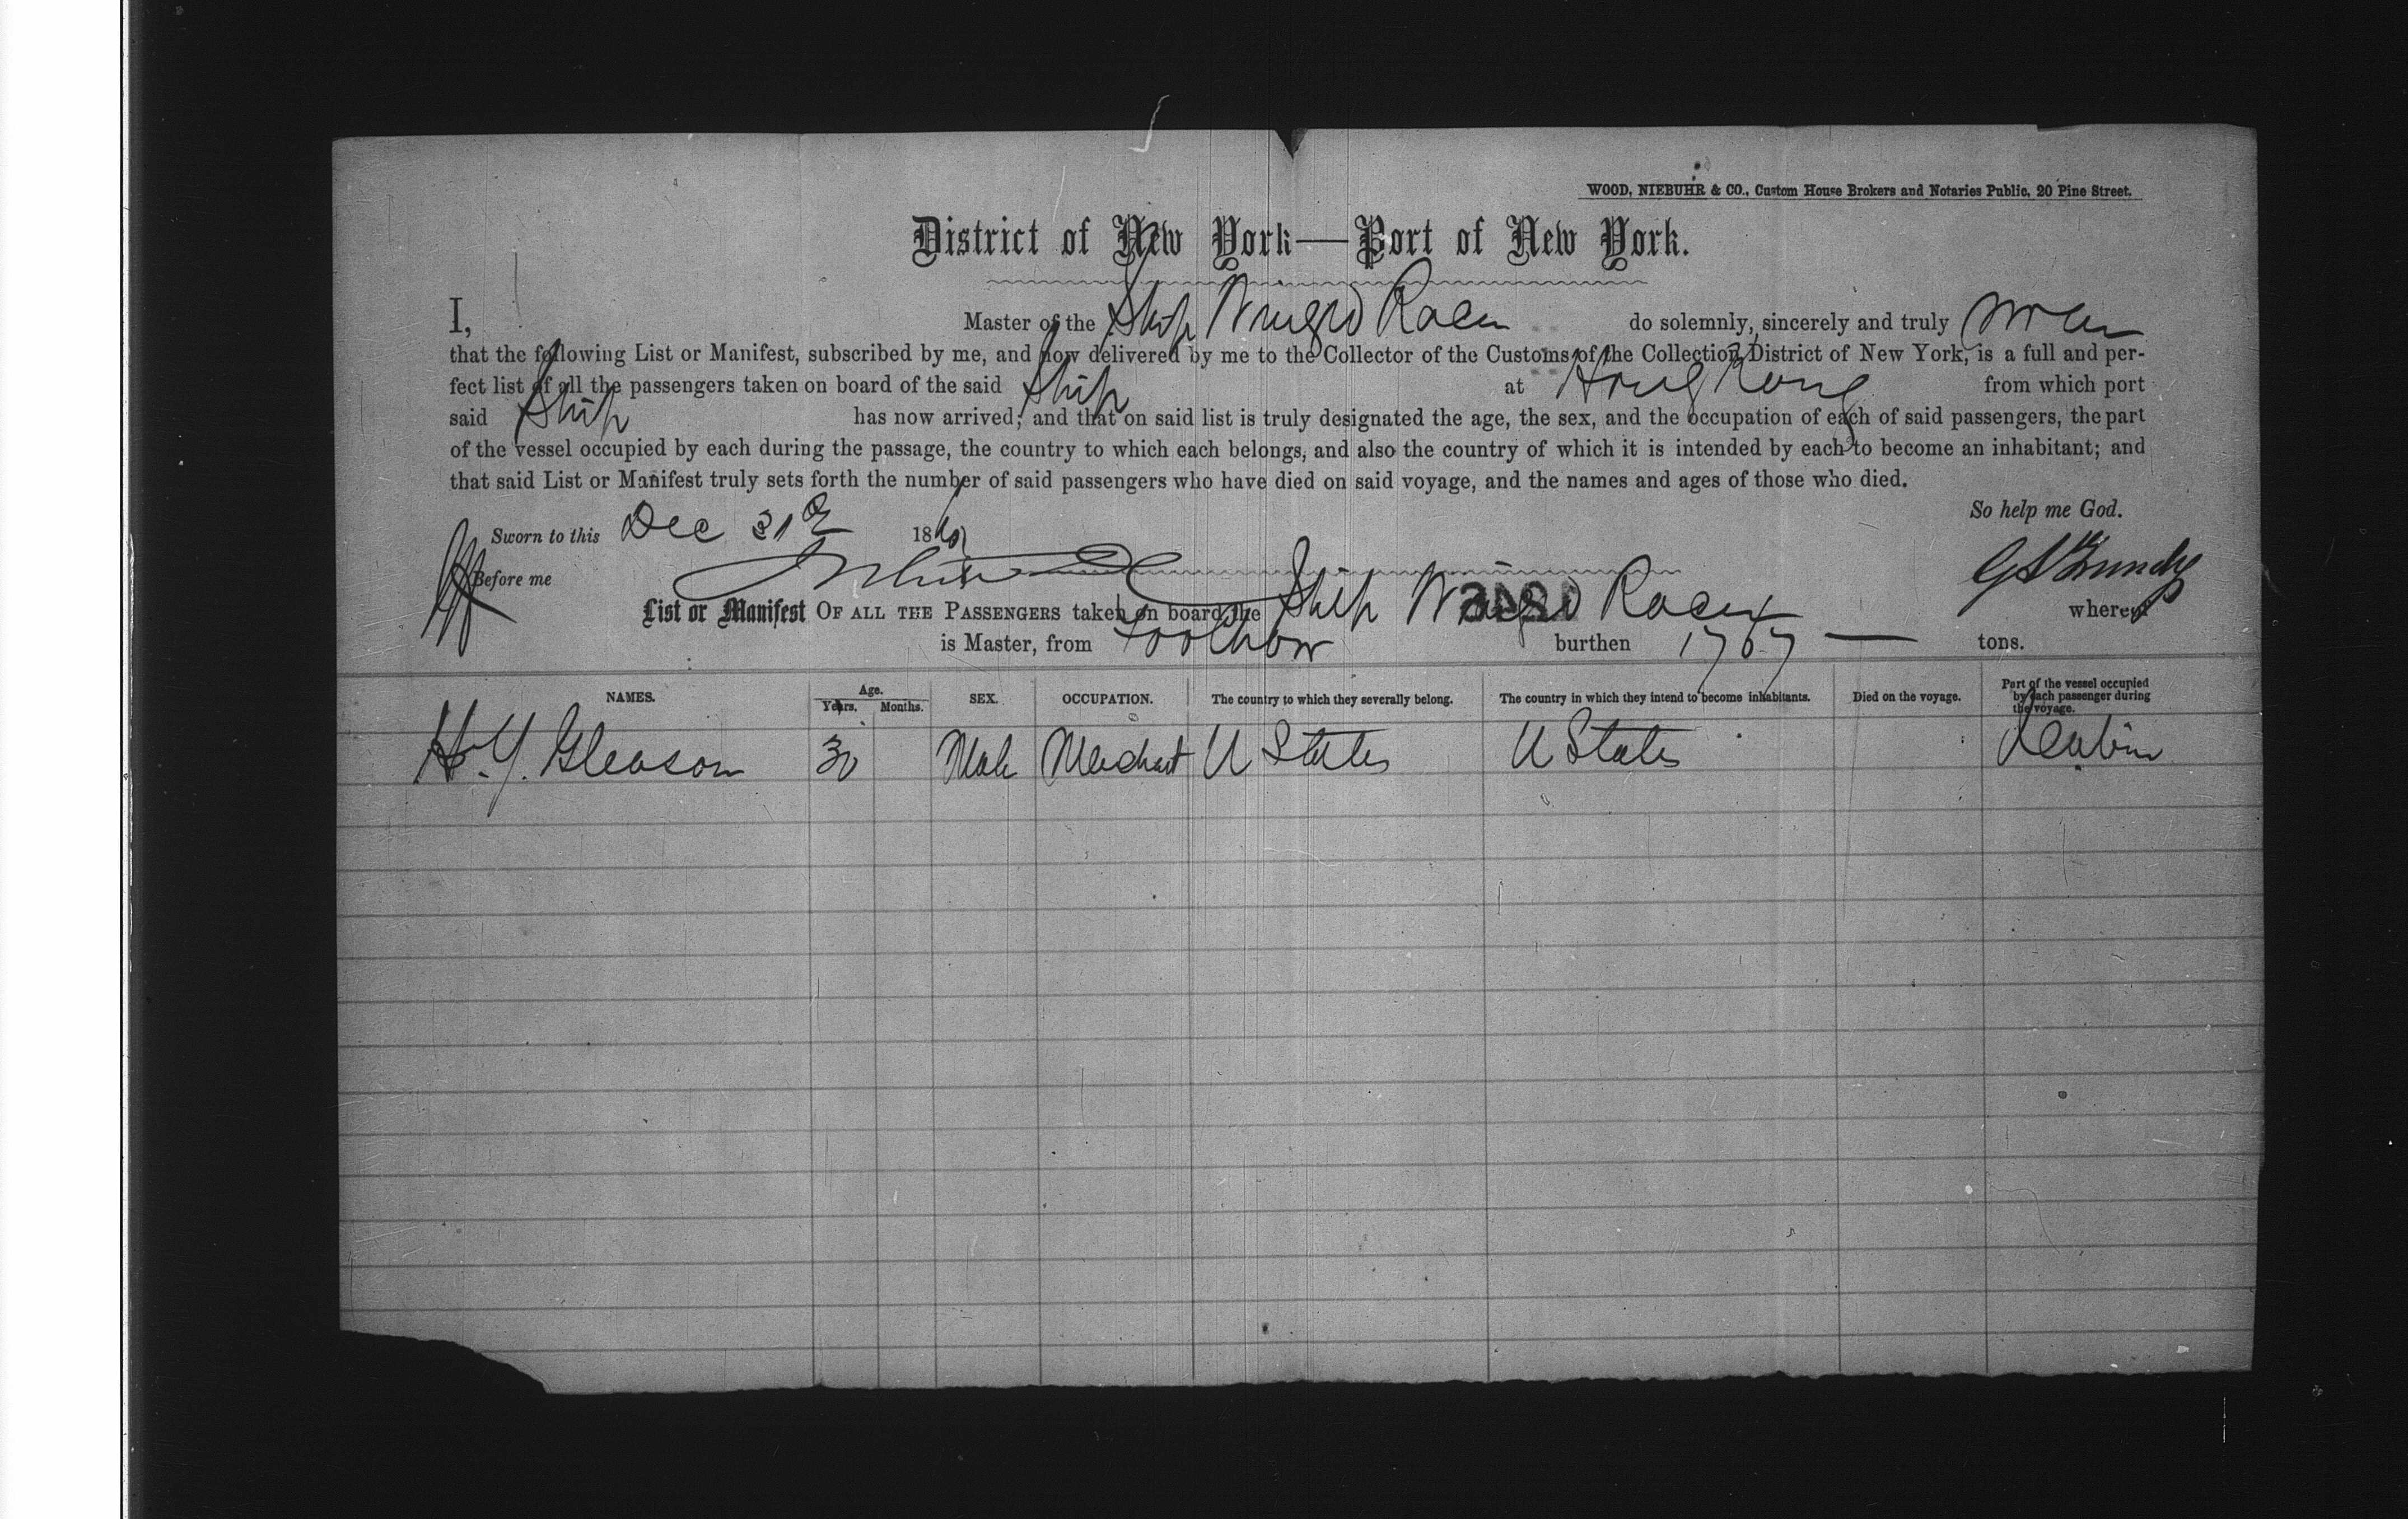 WOOD, NIEBUHR & CO., Custom House Brokers and Notaries Public, 20 Pine Street.
District of New York—Port of New York.
I, Master of the Ship Winged Racer do solemnly, sincerely and truly swear
that the following List or Manifest, subscribed by me, and now delivered by me to the Collector of the Customs of the Collection District of New York, is a full and per-
fect list of all the passengers taken on board of the said Ship at Hong Kong from which port
said Ship has now arrived; and that on said list is truly designated the age, the sex, and the occupation of each of said passengers, the part
of the vessel occupied by each during the passage, the country to which each belongs, and also the country of which it is intended by each to become an inhabitant; and
that said List or Manifest truly sets forth the number of said passengers who have died on said voyage, and the names and ages of those who died.
So help me God.
Sworn to this Dec 31st 1860
Before me
List or Manifest OF ALL THE PASSENGERS taken on board the Ship Winged Racer whereof
is Master, from Foochow burthen 1767 — tons.
NAMES. Age. Years. Months. SEX. OCCUPATION. The country to which they severally belong. The country in which they intend to become inhabitants. Died on the voyage. Part of the vessel occupied by each passenger during the voyage.
H. Y. Gleason 30 Male Merchant U States U States Cabin